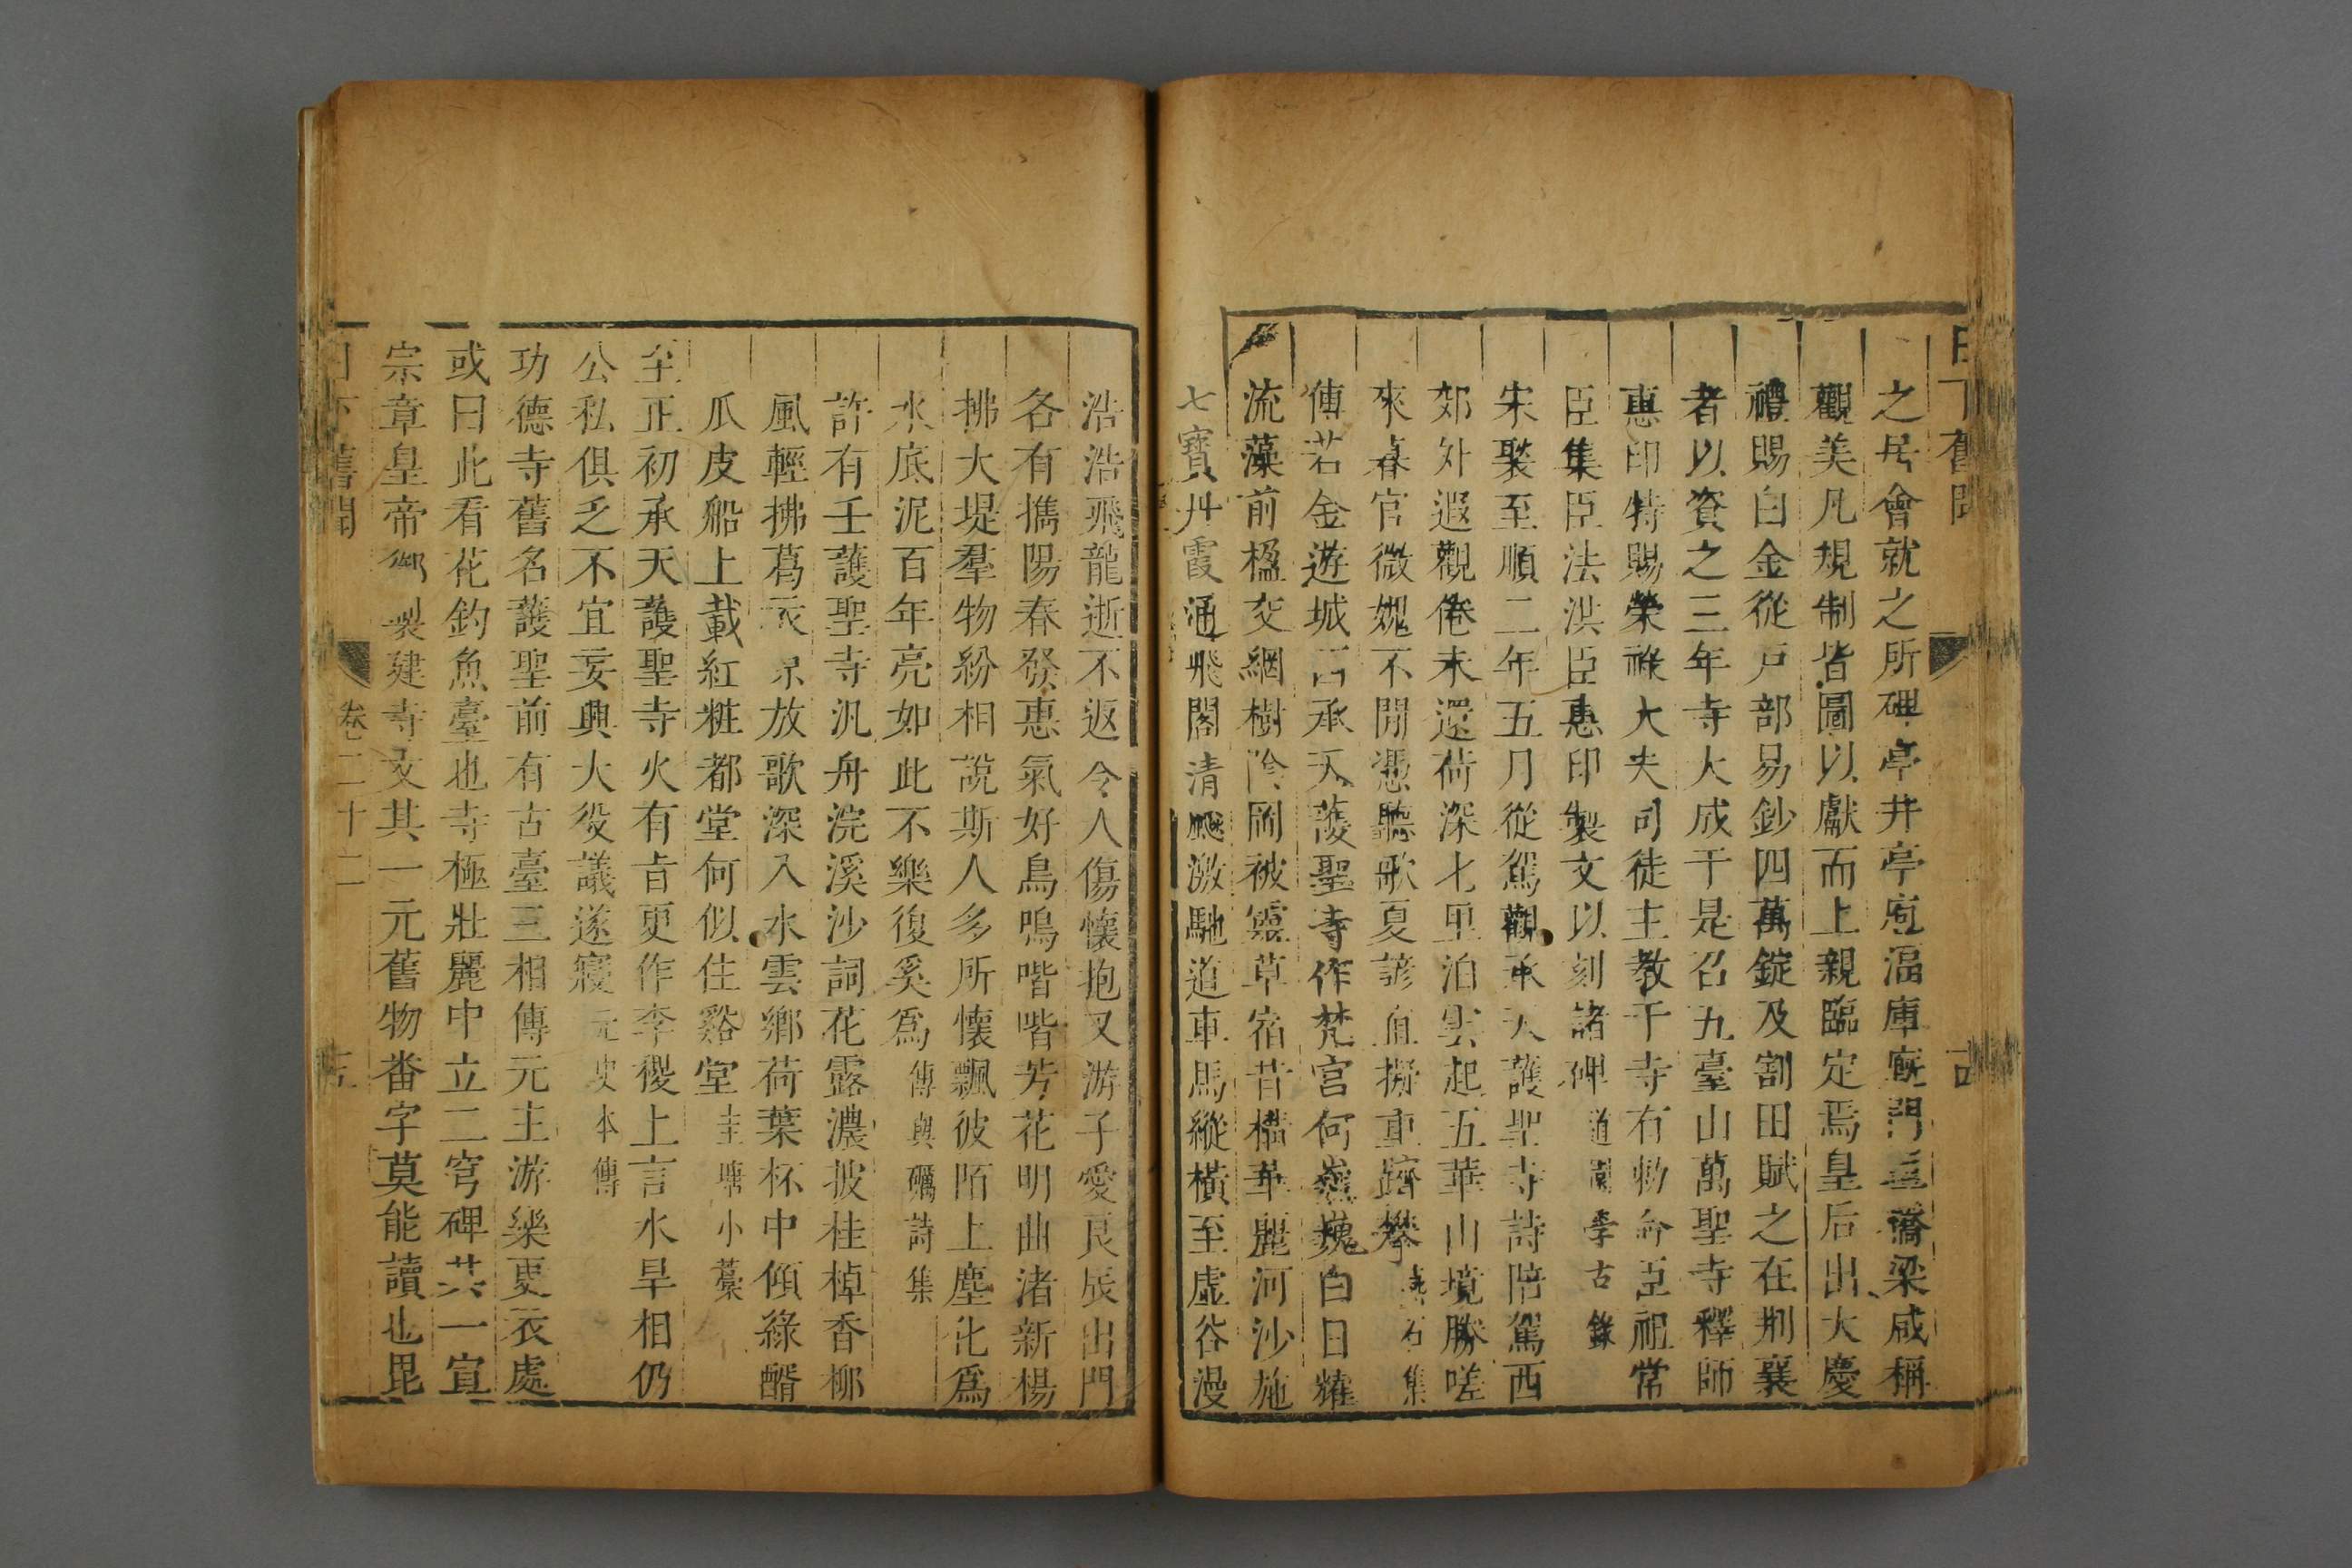 之居會就之所碑亭井亭庖湢庫廐門垣橋梁咸稱
觀美凡規制皆圖以獻而上親臨定焉皇后出大慶
禮賜白金從戶部易鈔四萬錠及割田賦之在荆襄
者以資之三年寺大成于是召五臺山萬聖寺釋師
惠印特賜榮祿大夫司徒主教于寺有勅命臣祖常
臣集臣法洪臣惠印製文以刻諸碑 道園學古錄
宋褧至順二年五月從駕觀承天護聖寺詩陪駕西
郊外遐觀倦未還荷深七里泊雲起五華山境勝嗟
來暮官微媿不閒憑聽歌夏諺直擬重躋攀 燕石集
傅若金遊城西承天護聖寺作梵宫何巍巍白日耀
流藻前楹交網樹陰岡被靈草宿昔構華麗河沙施
七寶丹霞通飛閣清飈激馳道車馬縱橫至虛谷漫
浩浩飛龍逝不返令人傷懷抱又游子愛良辰出門
各有攜陽春發惠氣好鳥鳴喈喈芳花明曲渚新楊
拂大堤羣物紛相說斯人多所懷飄彼陌上塵化爲
水底泥百年亮如此不樂復奚爲 傅與礪詩集
許有壬護聖寺汎舟浣溪沙詞花露濃披桂棹香柳
風輕拂葛衣凉放歌深入水雲鄉荷葉杯中傾綠醑
瓜皮船上載紅粧都堂何似住谿堂 圭塘小藁
至正初承天護聖寺火有旨更作李稷上言水旱相仍
公私俱乏不宜妄興大役議遂寢 元史本傳
功德寺舊名護聖前有古臺三相傳元主游樂更衣處
或曰此看花釣魚臺也寺極壯麗中立二穹碑其一宣
宗章皇帝御製建寺文其一元舊物畨字莫能讀也毘
日下舊聞 卷二十二